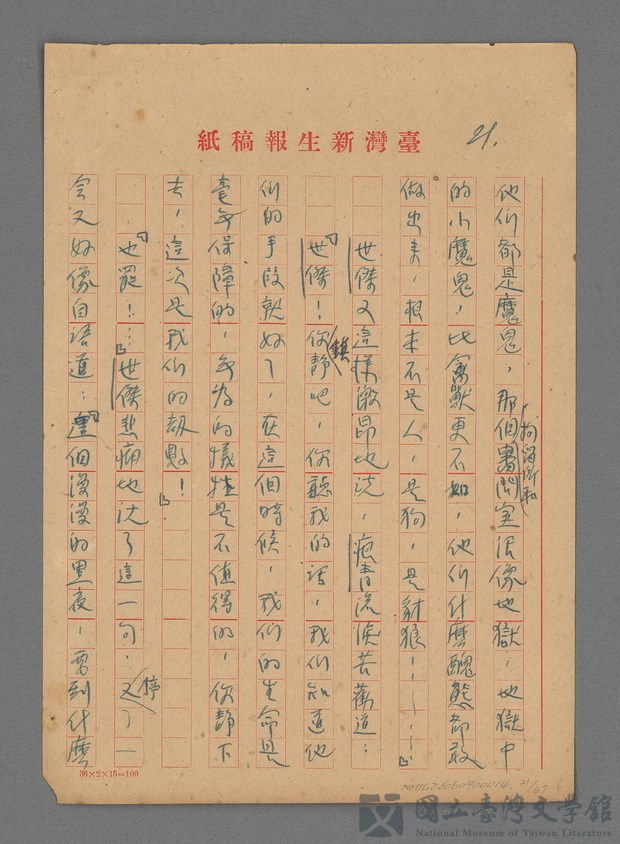 臺灣新生報稿紙
21.
他们都是魔鬼，那個審問室活像地獄，地獄中
拘留所和
的小魔鬼，比禽獸更不如，他们什麼醜態都敢
做出来，根本不是人，是狗，是豺狼……」
世傑又這樣激昂地说，痕青流淚苦勸道：
「世傑！你鎮静吧，你聽我的話，我们知道他
们的手段就好了，在這個時候，我们的生命是
毫無保障的，無為的犠牲是不值得的，你静下
去，這次是我们的劫數！」
「也罷！…」世傑悲痛地说了這一句，又停了一
会又好像自语道：「這個漫漫的黑夜，要到什麼
36×2×15=100
NMTL20060900014, 21/67
國立臺灣文學館
National Museum of Taiwan Literature